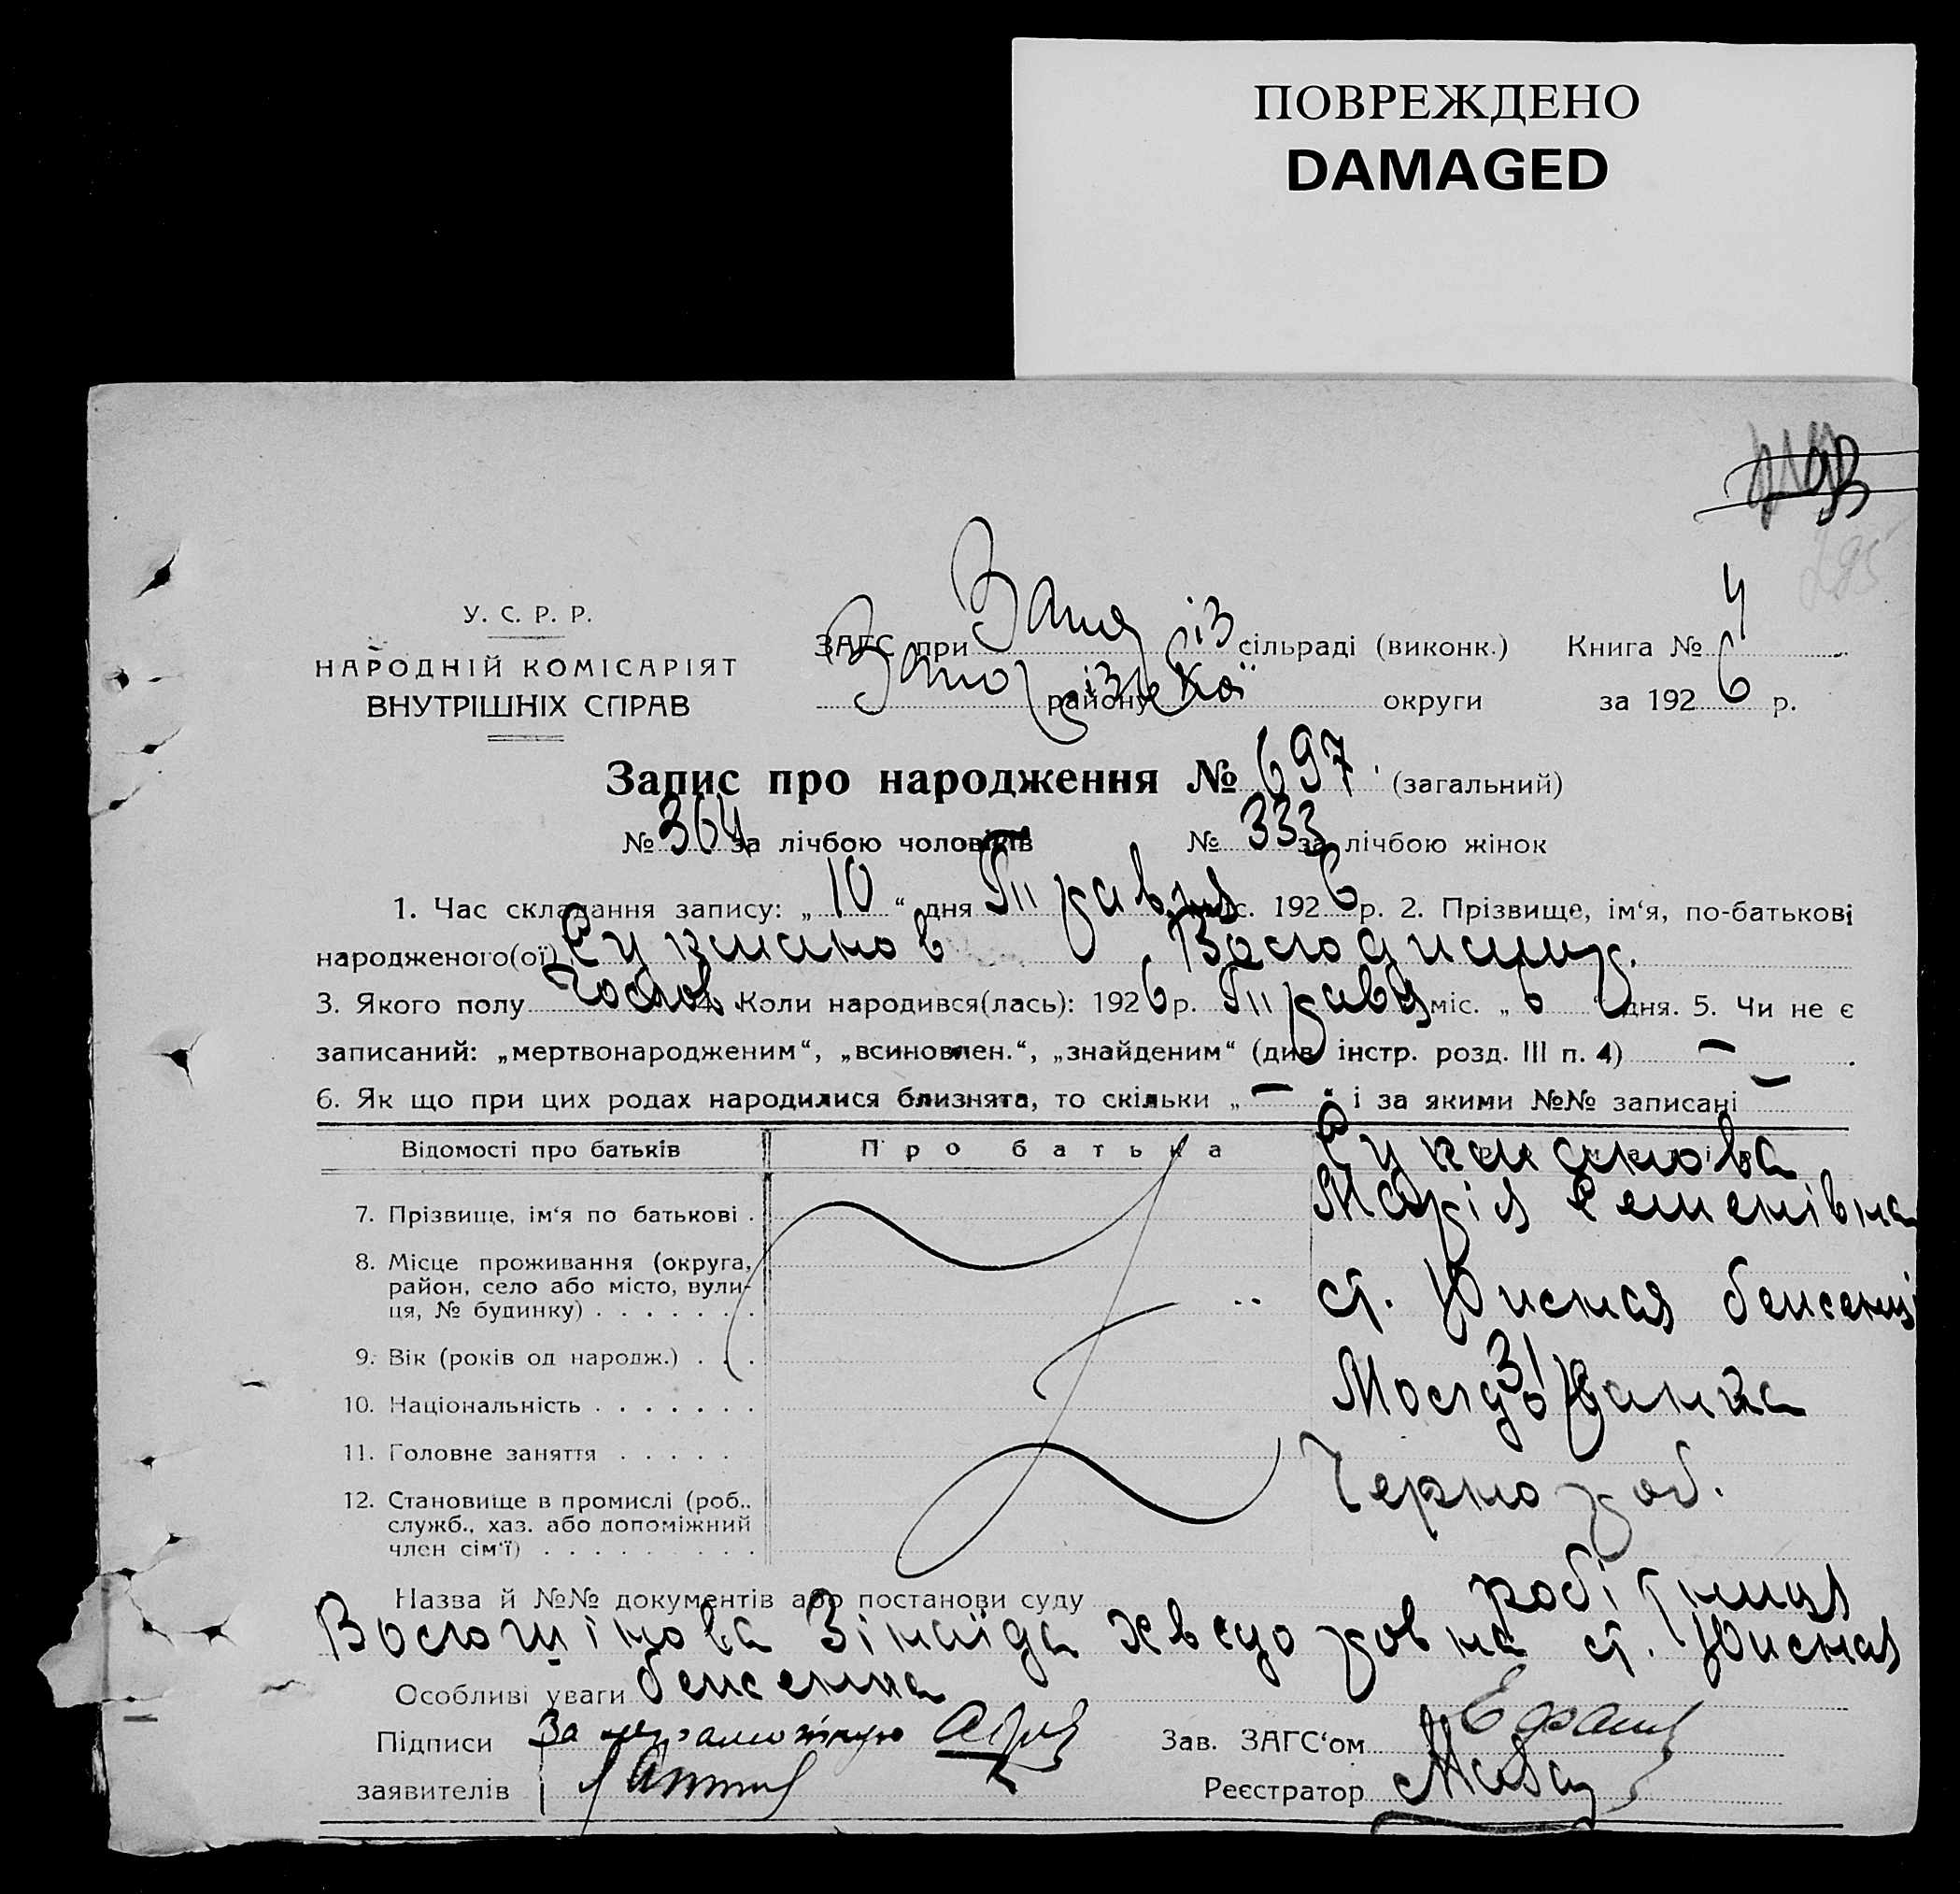 ПОВРЕЖДЕНО
DAMAGED
У. С. Р. Р.
НАРОДНІЙ КОМІСАРІЯТ
ВНУТРІШНІХ СПРАВ
ЗАГС при сільраді (виконк.) Книга № 4
району округи за 1926 р.
Запис про народження № 697 (загальний)
№ 364 за лічбою чоловіків № 333 за лічбою жінок
1. Час складання запису: „10“ дня Травня міс. 1926 р. 2. Прізвище, ім‘я, по-батькові
народженого(ої) Сукманов Володимир.
3. Якого полу Чолов. 4. Коли народився(лась): 1926 р. Травя міс. „6“ дня. 5. Чи не є
записаний: „мертвонародженим“, „всиновлен.“, „знайденим“ (див. інстр. розд. III п. 4) —
6. Як що при цих родах народилися близнята, то скільки „—“ і за якими №№ записані —
Відомості про батьків Про батька Сукманова
7. Прізвище, ім‘я по батькові . Марія Семенівна
8. Місце проживання (округа,
район, село або місто, вули-
ця, № будинку) . . . . . . . ст. Южная
9. Вік (років од народж.) . . . 31
10. Національність . . . . . . . Молдованка
11. Головне заняття . . . . . Чернороб.
12. Становище в промислі (роб.,
служб., хаз. або допоміжний
член сім‘ї) . . . . . . . . .
Назва й №№ документів або постанови суду робітниця
Волошінова Зінаїда ст. Южная
Особливі уваги
Підписи За неграмотную Зав. ЗАГС‘ом
заявителів Реєстратор